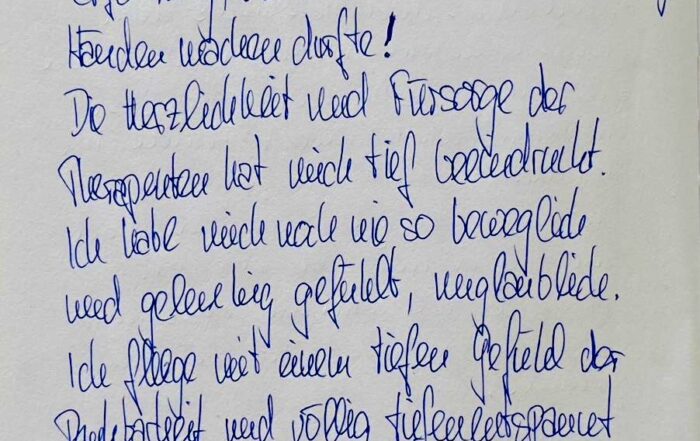 Händen machen durfte!
Die Herzlichkeit und Fürsorge der
Therapeuten hat mich tief beeindruckt.
Ich habe mich noch nie so beweglich
und gelenkig gefühlt, unglaublich.
Ich fliege mit einem tiefen Gefühl der
Dankbarkeit und völlig tiefenentspannt